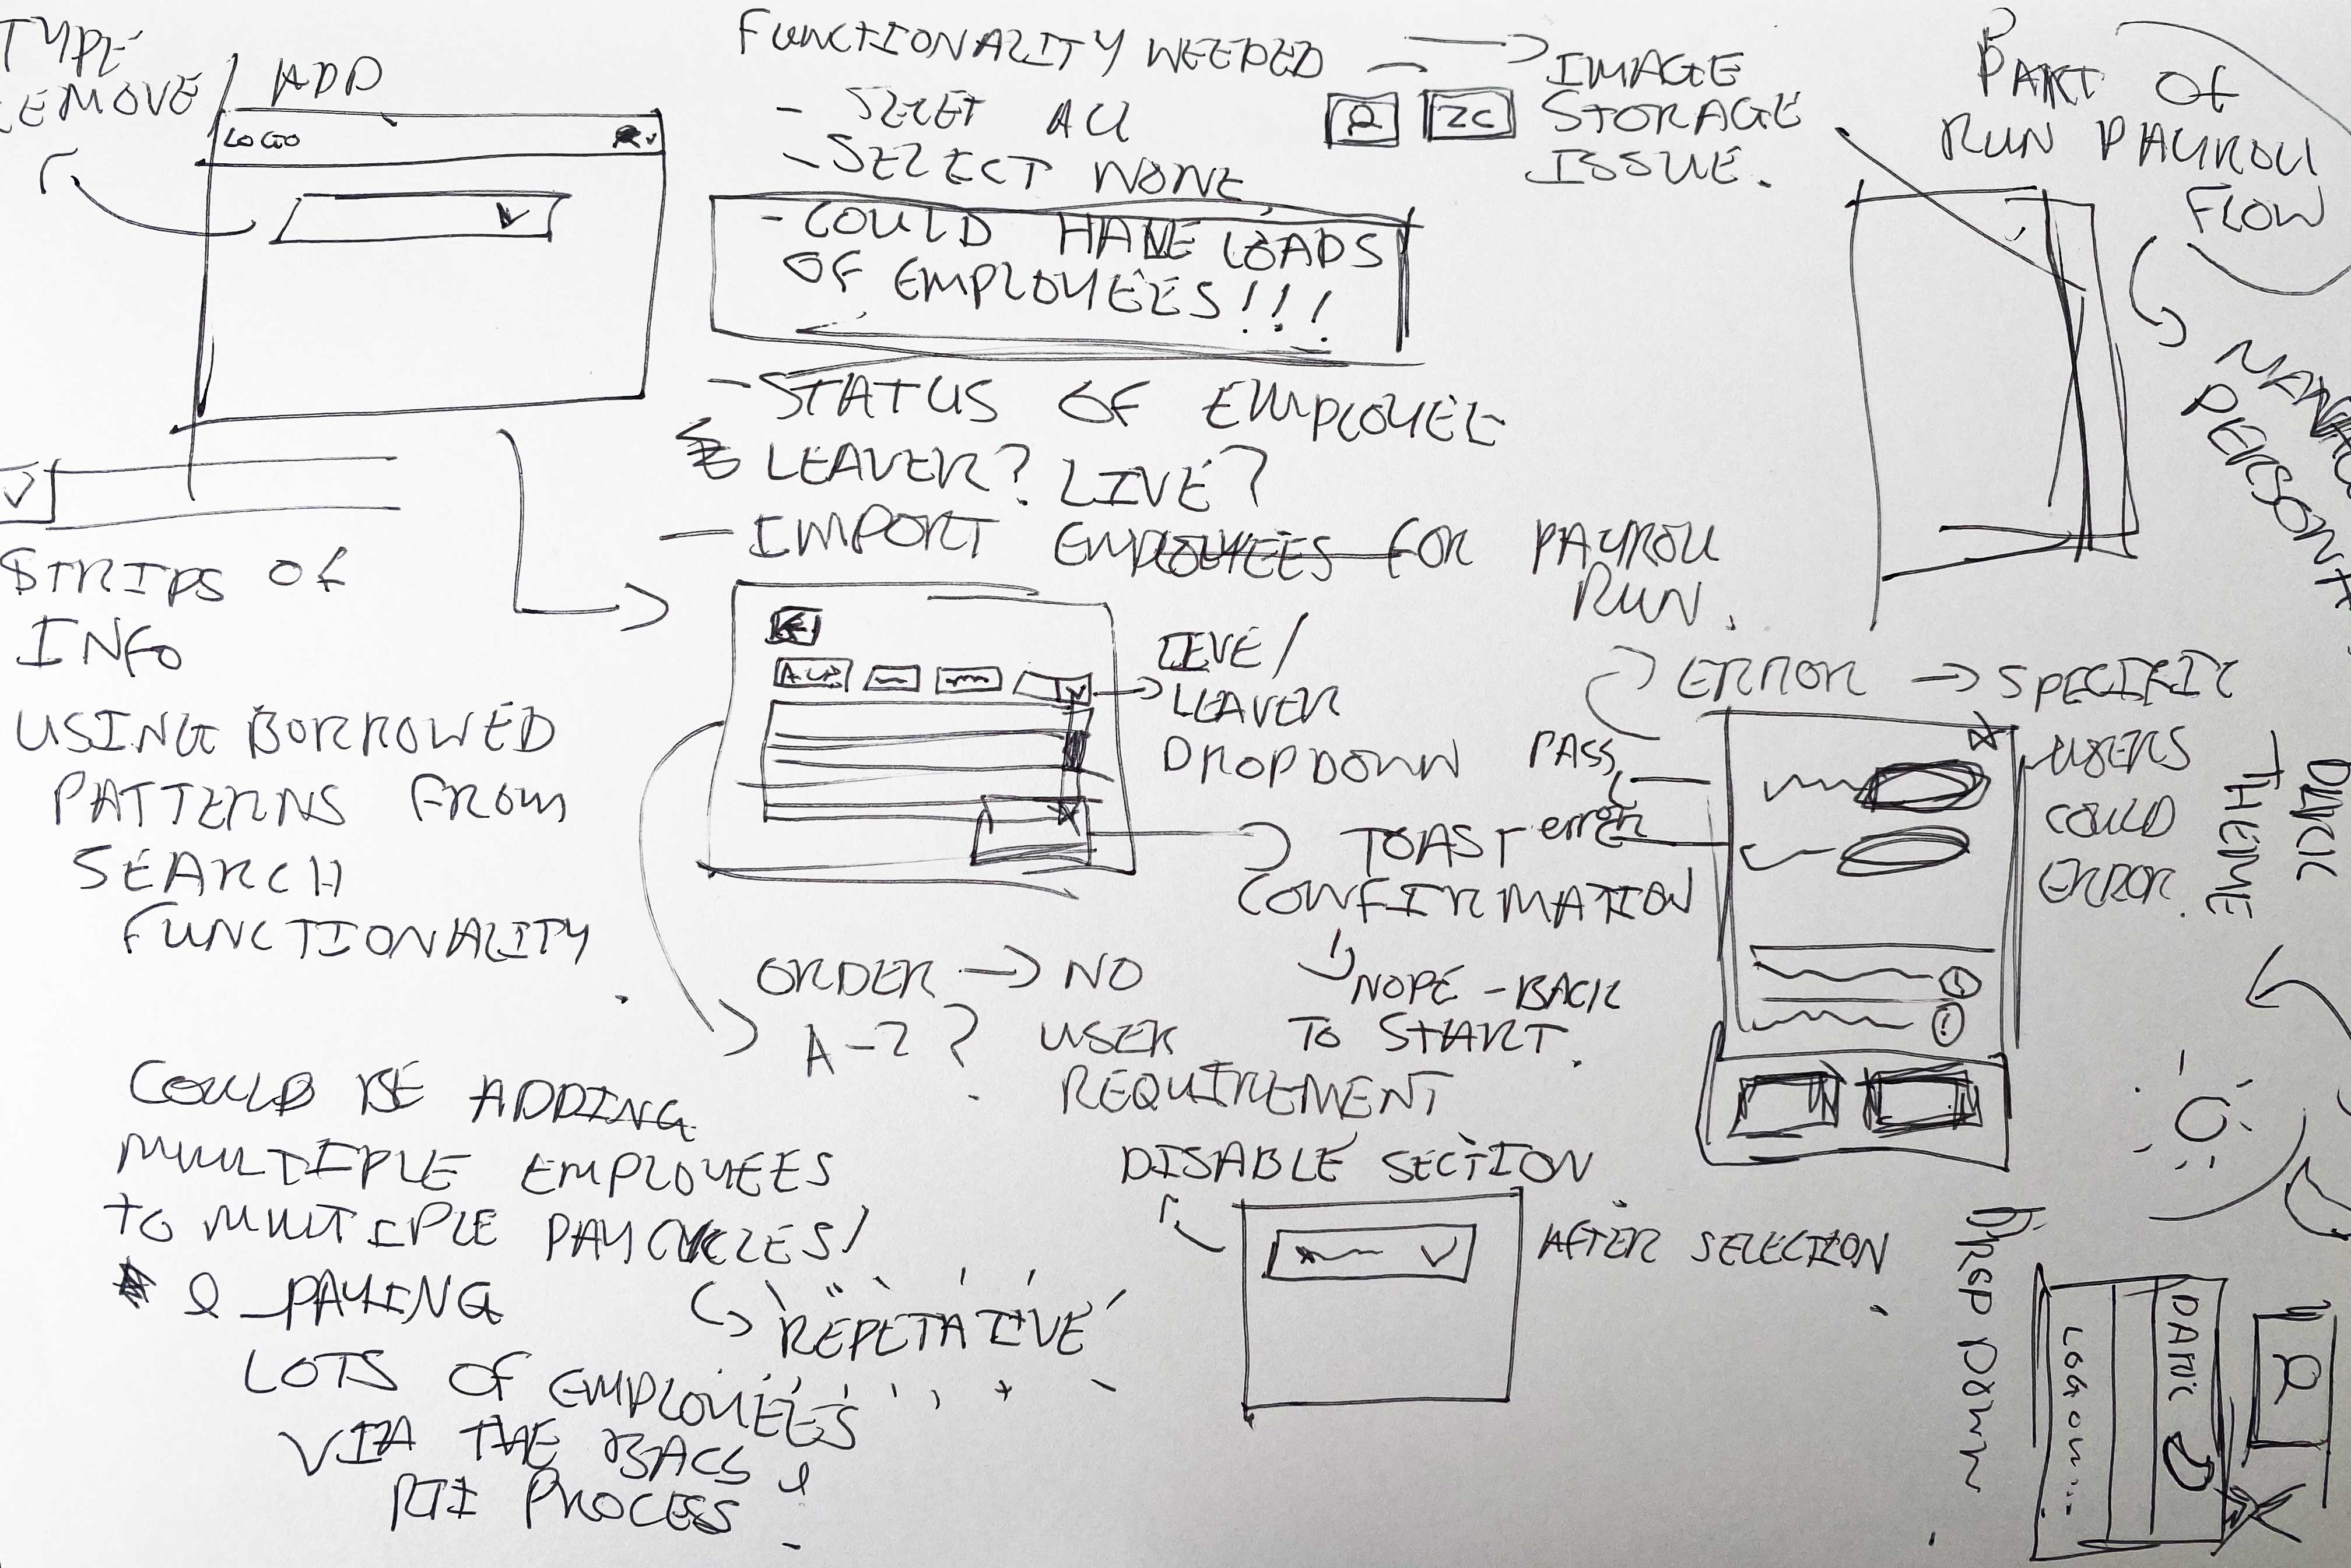 TYPE
REMOVE / ADD
LOGO
STRIPS OF
INFO
USING BORROWED
PATTERNS FROM
SEARCH
FUNCTIONALITY
COULD BE ADDING
MULTIPLE EMPLOYEES
TO MULTIPLE PAYCYCLES!
& PAYING
LOTS OF EMPLOYEES
VIA THE BACS &
RTI PROCESS
REPETATIVE
FUNCTIONALITY NEEDED
- SELECT ALL
- SELECT NONE
- COULD HAVE LOADS
OF EMPLOYEES!!!
- STATUS OF EMPLOYEE
LEAVER? LIVE?
- IMPORT EMPLOYEES FOR PAYROLL
RUN.
IMAGE
STORAGE
ISSUE.
ZC
ALL
LIVE /
LEAVER
DROPDOWN
TOAST
CONFIRMATION
NOPE - BACK
TO START.
ORDER → NO
A-Z? USER
REQUIREMENT
DISABLE SECTION
AFTER SELECTION
PART OF
RUN PAYROLL
FLOW
PERSONA
ERROR → SPECIFIC
USERS
COULD
ERROR.
PASS
error
DARK
THEME
DROP DOWN
DARK
LOG OUT